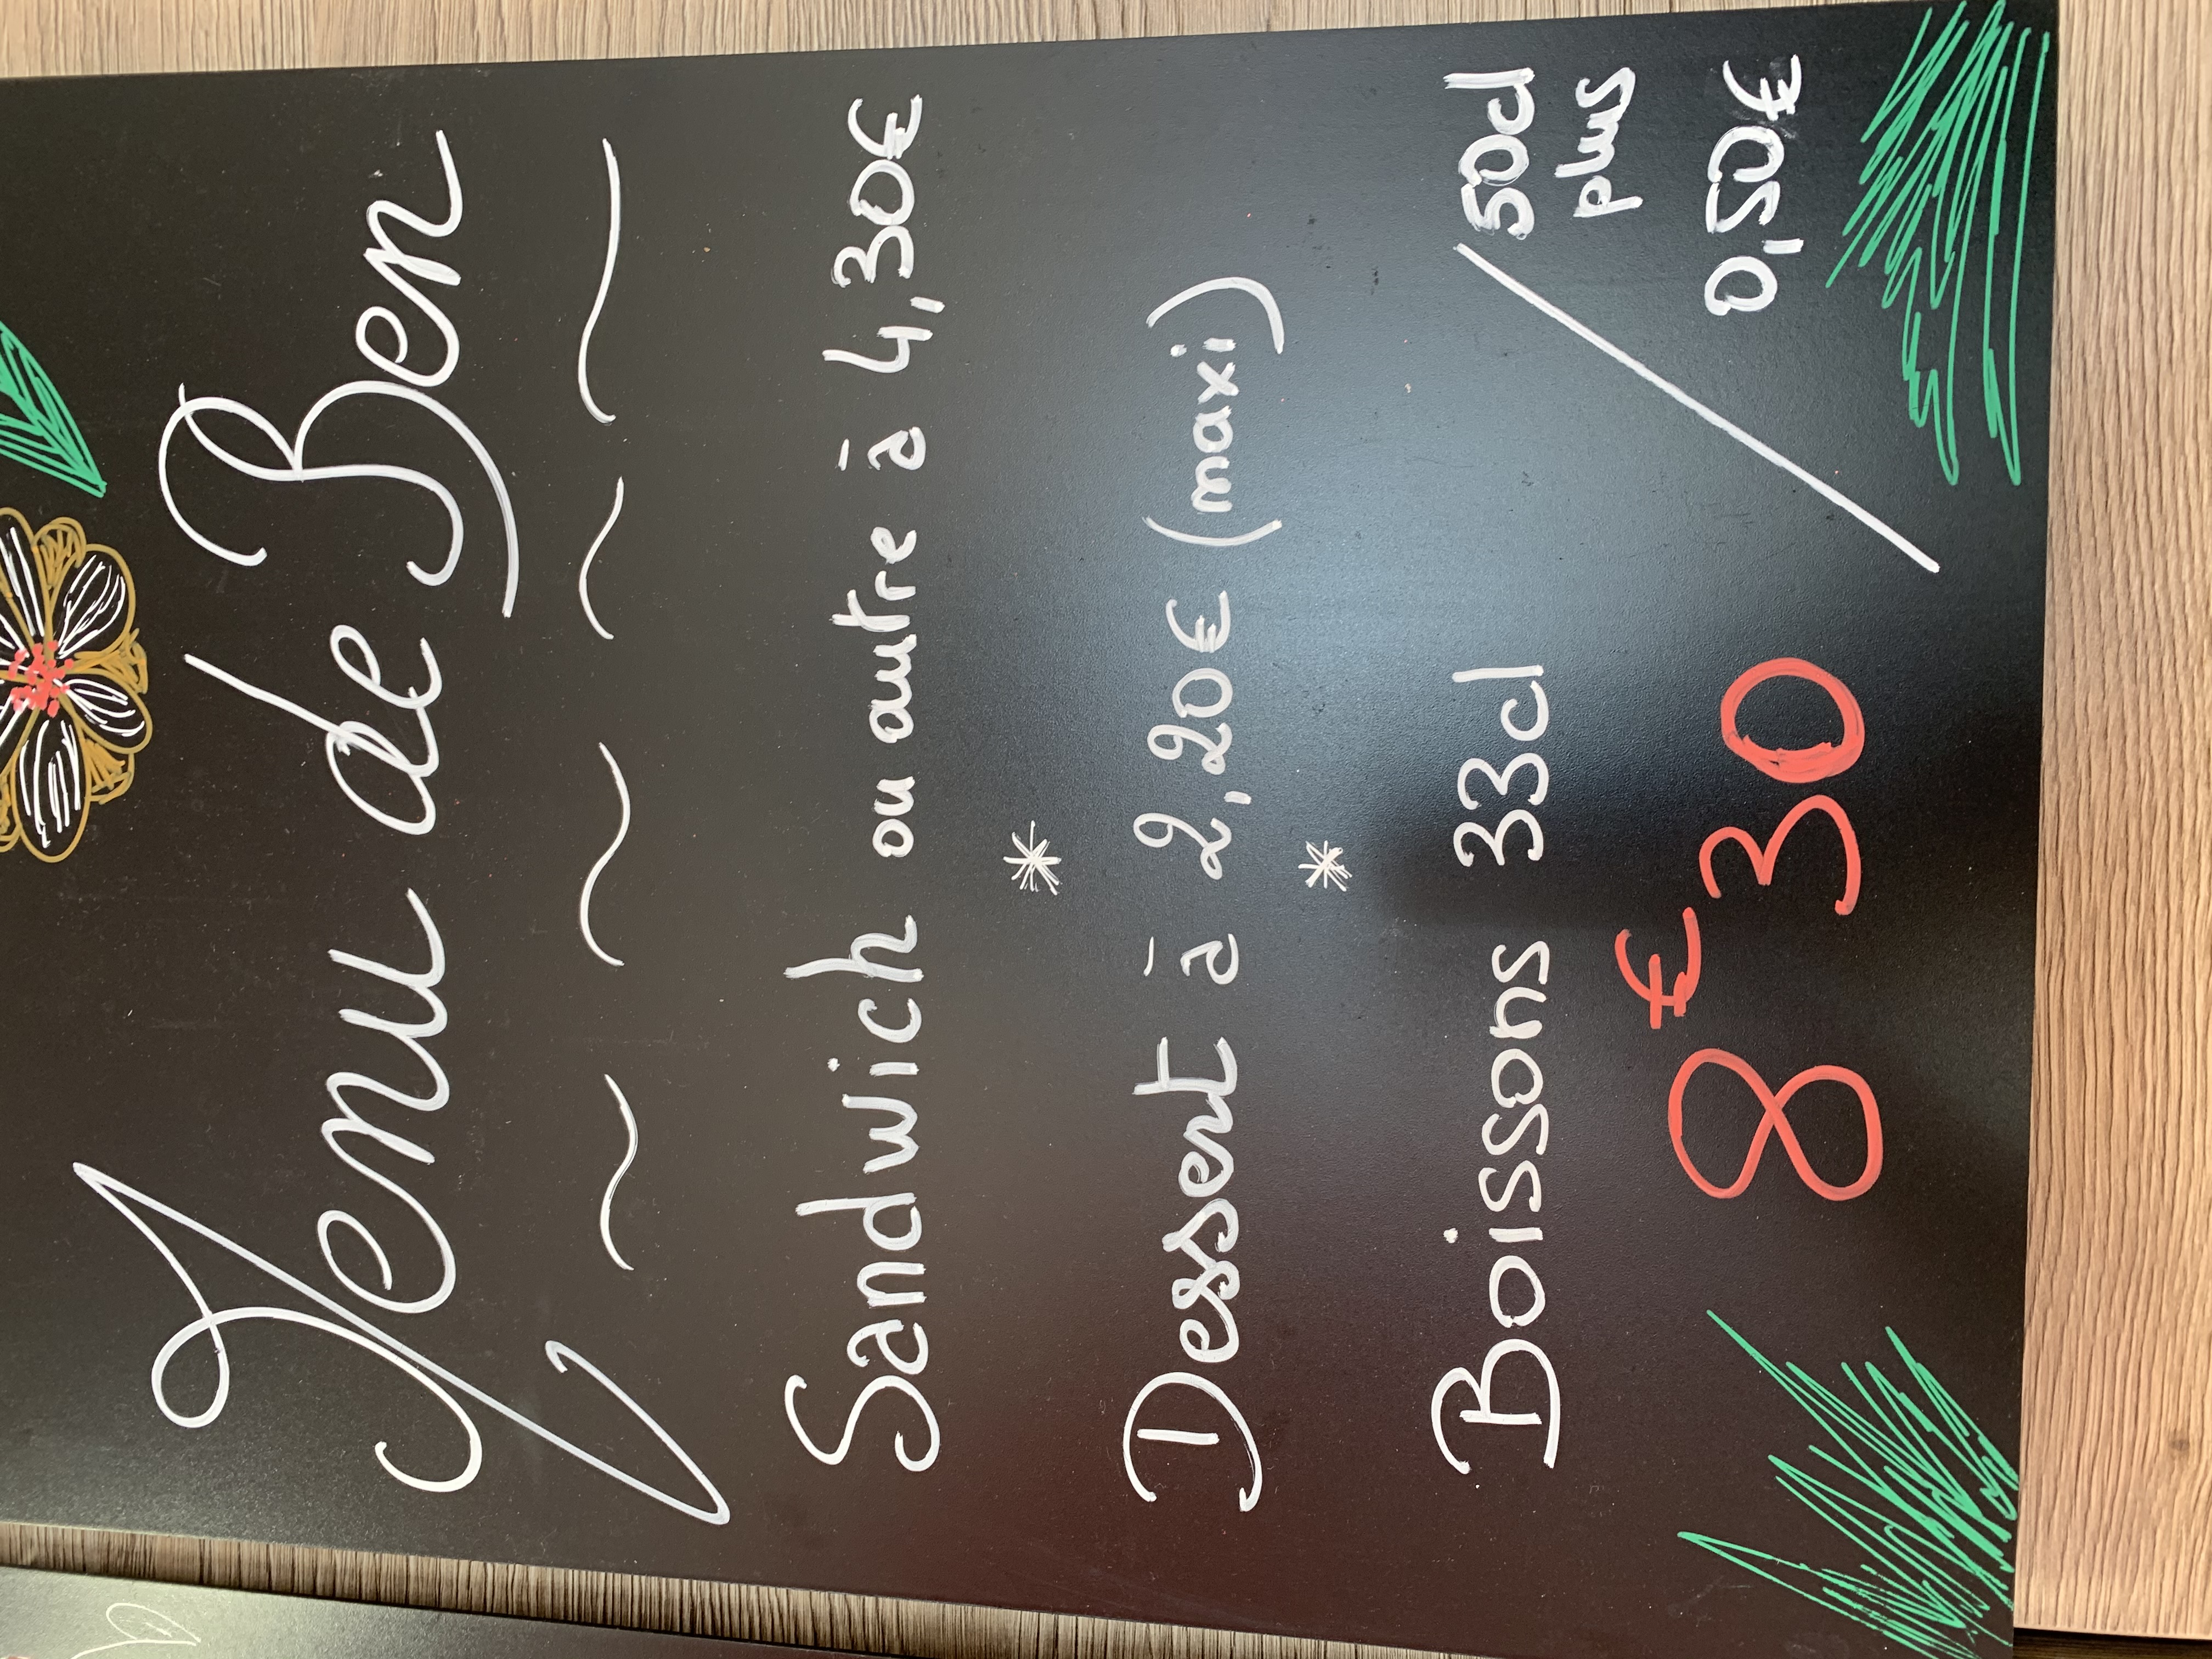 Menu de Ben
Sandwich ou autre à 4,30€
*
Dessert à 2,20€ (maxi)
*
Boissons 33cl / 50cl
plus
0,50€
8€30